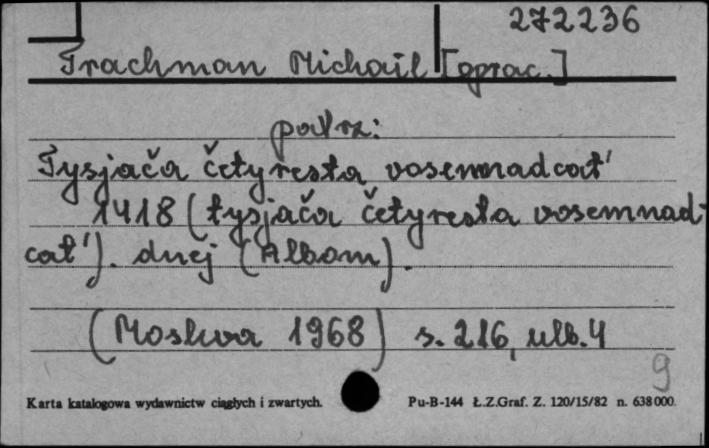 272236
Trachman Michail [oprac.]
patrz:
Tysjača četyresta vosemnadcat'
1418 (tysjača četyresta vosemnad-
cat'). dnej (Albom).
(Moskva 1968) s. 216, nlb. 4
9
Karta katalogowa wydawnictw ciągłych i zwartych. Pu-B-144 Ł.Z.Graf. Z. 120/15/82 n. 638000.